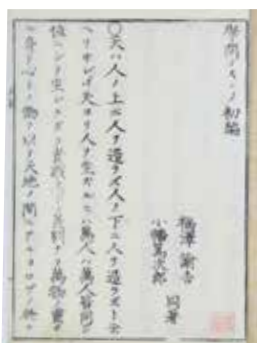 學問ノスヽメ 初編
福澤諭吉
小幡篤次郎 同著
〇天ハ人ノ上ニ人ヲ造ラズ人ノ下ニ人ヲ造ラズト云
ヘリサレバ天ヨリ人ヲ生ズルニハ萬人ハ萬人皆同ジ
位ニシテ生レナガラ貴賤上下ノ差別ナク萬物ノ靈タ
ル身ト心トノ働ヲ以テ天地ノ間ニアルヨロヅノ物ヲ